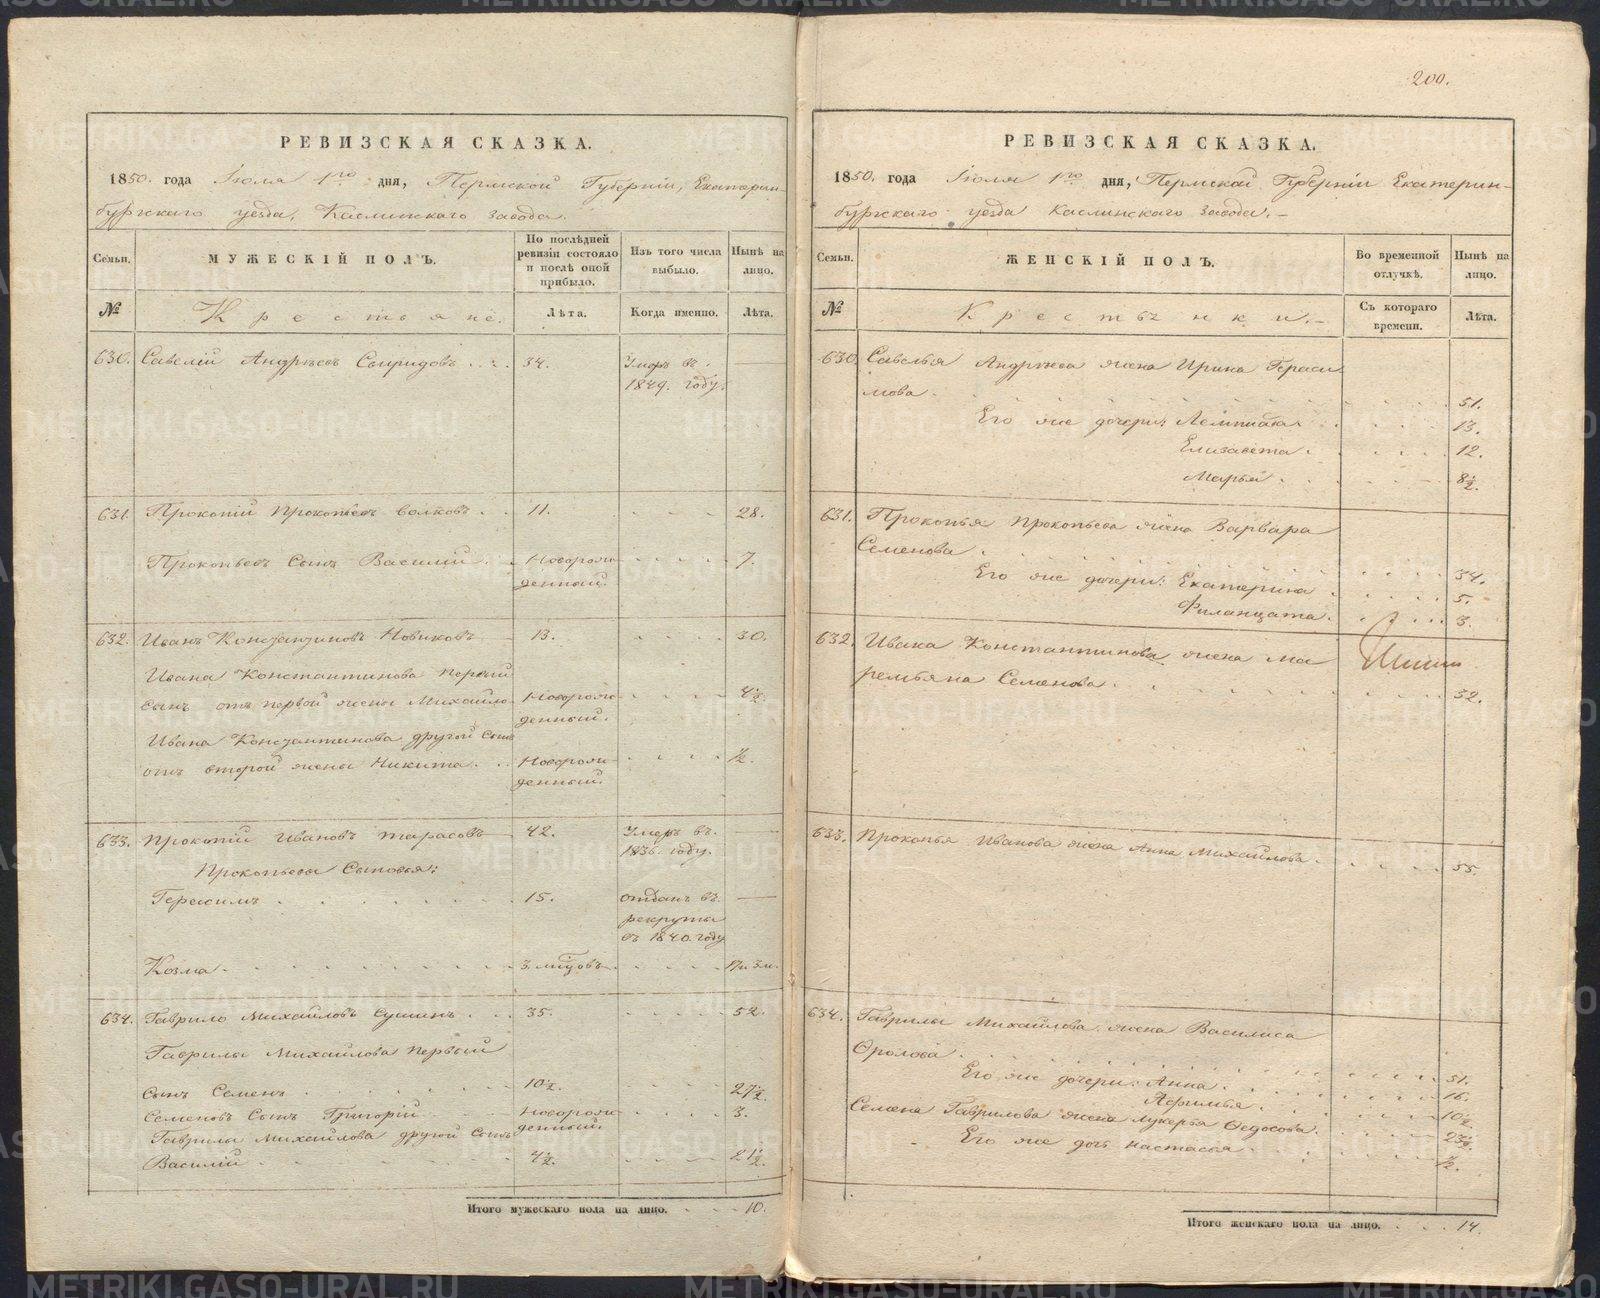 200.
РЕВИЗСКАЯ СКАЗКА.
1850. года Іюля 1го дня, Пермской Губерніи, Екатерин-
бургскаго уезда, Каслинскаго завода.
Семьи. МУЖЕСКІЙ ПОЛЪ. По послѣдней ревизіи состояло и послѣ оной прибыло. Изъ того числа выбыло. Нынѣ на лицо.
№ Крестьяне. Лѣта. Когда именно. Лѣта.
630. Савелій Андрѣевъ Свиридовъ 34. Умеръ въ
1849. году.
631. Прокопій Прокопьевъ Волковъ 11. 28.
Прокопьевъ Сынъ Василій Новорож- 7.
денный.
632. Иванъ Константиновъ Новиковъ 13. 30.
Ивана Константинова первый
сынъ отъ первой жены Михайло Новорож- 4½.
денный.
Ивана Константинова другой Сынъ
отъ второй жены Никита Новорож- ½.
денный.
633. Прокопій Ивановъ Тарасовъ 42. Умеръ въ
1836. году.
Прокопьевы Сыновья:
Герасимъ 15. отданъ въ
рекруты
въ 1840. году
Козма 3. мцовъ 17 и 3 м.
634. Гаврило Михайловъ Сушинъ 35. 52.
Гаврилы Михайлова первый
сынъ Семенъ 10½. 27½.
Семеновъ Сынъ Григорій Новорож- 3.
денный.
Гаврилы Михайлова другой Сынъ
Василій 4½. 21½.
Итого мужескаго пола на лицо. 10.
РЕВИЗСКАЯ СКАЗКА.
1850. года Іюля 1го дня, Пермской Губерніи Екатерин-
бургскаго уезда Каслинскаго завода.
Семьи. ЖЕНСКІЙ ПОЛЪ. Во временной отлучкѣ. Нынѣ на лицо.
№ Крестьянки. Съ котораго времени. Лѣта.
630. Савелья Андрѣева жена Ирина Гераси
мова 51.
Его же дочери: 13.
Елизавета 12.
Марья 8½.
631. Прокопья Прокопьева жена Варвара
Семенова 34.
Его же дочери: Екатерина 5.
Филанцата 3.
632. Ивана Константинова жена Ма
ремьяна Семенова 32.
633. Прокопья Иванова жена Анна Михайлова 55.
634. Гаврилы Михайлова жена Василиса
Фролова 51.
Его же дочери: Анна 16.
Афимья 10½.
Семена Гаврилова жена Лукерья Федосова 23½.
Его же дочь Настасья ½.
Итого женскаго пола на лицо. 14.
METRIKI.GASO-URAL.RU